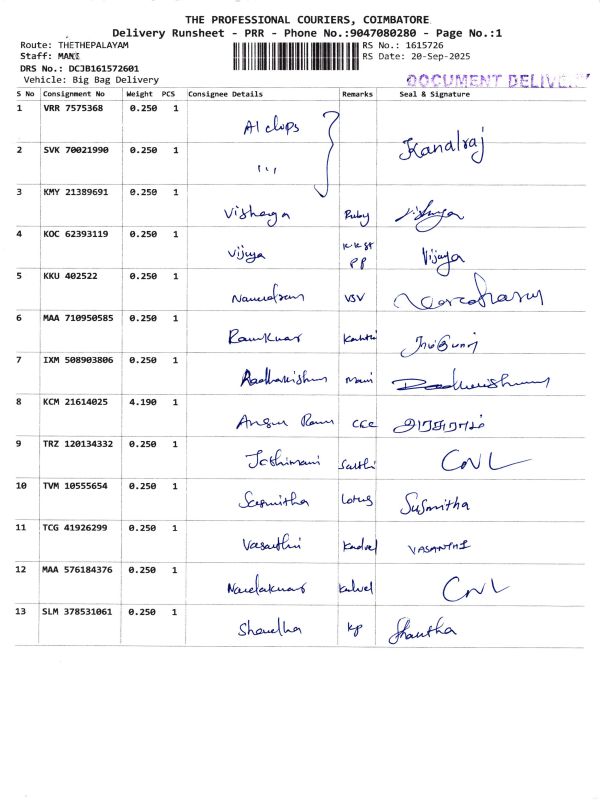 THE PROFESSIONAL COURIERS, COIMBATORE
Delivery Runsheet - PRR - Phone No.:9047080280 - Page No.:1
Route: THETHEPALAYAM
RS No.: 1615726
Staff: MANI
RS Date: 20-Sep-2025
DRS No.: DCJB161572601
Vehicle: Big Bag Delivery
DOCUMENT DELIVE
S No Consignment No Weight PCS Consignee Details Remarks Seal & Signature
1 VRR 7575368 0.250 1
2 SVK 70021990 0.250 1 ,,,
3 KMY 21389691 0.250 1 Ruby
4 KOC 62393119 0.250 1 Vijaya Vijaya
5 KKU 402522 0.250 1 VSV
6 MAA 710950585 0.250 1 Ramkumar
7 IXM 508903806 0.250 1 Radhakrishnan mani
8 KCM 21614025 4.190 1 CCC
9 TRZ 120134332 0.250 1 Jothimani Sakthi CNL
10 TVM 10555654 0.250 1 Susmitha Lotus Susmitha
11 TCG 41926299 0.250 1 Vasanthi VASANTHI
12 MAA 576184376 0.250 1 Nandakumar CNL
13 SLM 378531061 0.250 1 Shandha KP Shantha